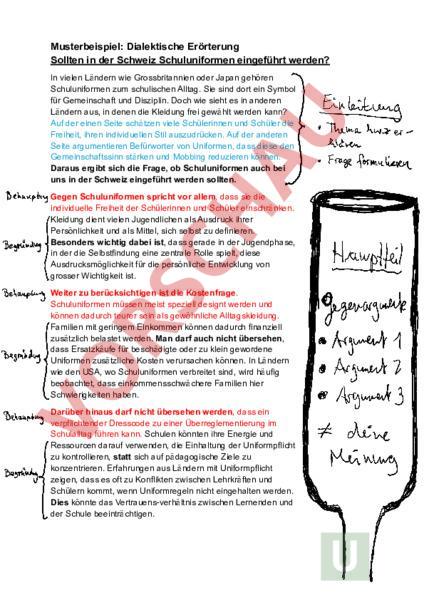 Musterbeispiel: Dialektische Erörterung
Sollten in der Schweiz Schuluniformen eingeführt werden?
In vielen Ländern wie Grossbritannien oder Japan gehören
Schuluniformen zum schulischen Alltag. Sie sind dort ein Symbol
für Gemeinschaft und Disziplin. Doch wie sieht es in anderen
Ländern aus, in denen die Kleidung frei gewählt werden kann?
Auf der einen Seite schätzen viele Schülerinnen und Schüler die
Freiheit, ihren individuellen Stil auszudrücken. Auf der anderen
Seite argumentieren Befürworter von Uniformen, dass diese den
Gemeinschaftssinn stärken und Mobbing reduzieren können.
Daraus ergibt sich die Frage, ob Schuluniformen auch bei
uns in der Schweiz eingeführt werden sollten.
Einleitung
• Thema kurz er-
klären
• Frage formulieren
Behauptung
Gegen Schuluniformen spricht vor allem, dass sie die
individuelle Freiheit der Schülerinnen und Schüler einschränken.
Kleidung dient vielen Jugendlichen als Ausdruck ihrer
Persönlichkeit und als Mittel, sich selbst zu definieren.
Begründung
Besonders wichtig dabei ist, dass gerade in der Jugendphase,
in der die Selbstfindung eine zentrale Rolle spielt, diese
Ausdrucksmöglichkeit für die persönliche Entwicklung von
grosser Wichtigkeit ist.
Behauptung
Weiter zu berücksichtigen ist die Kostenfrage.
Schuluniformen müssen meist speziell designt werden und
können dadurch teurer sein als gewöhnliche Alltagskleidung.
Familien mit geringem Einkommen können dadurch finanziell
zusätzlich belastet werden. Man darf auch nicht übersehen,
dass Ersatzkäufe für beschädigte oder zu klein gewordene
Begründung
Uniformen zusätzliche Kosten verursachen können. In Ländern
wie den USA, wo Schuluniformen verbreitet sind, wird häufig
beobachtet, dass einkommensschwächere Familien hier
Schwierigkeiten haben.
Behauptung
Darüber hinaus darf nicht übersehen werden, dass ein
verpflichtender Dresscode zu einer Überreglementierung im
Schulalltag führen kann. Schulen könnten ihre Energie und
Ressourcen darauf verwenden, die Einhaltung der Uniformpflicht
zu kontrollieren, statt sich auf pädagogische Ziele zu
konzentrieren. Erfahrungen aus Ländern mit Uniformpflicht
Begründung
zeigen, dass es oft zu Konflikten zwischen Lehrkräften und
Schülern kommt, wenn Uniformregeln nicht eingehalten werden.
Dies könnte das Vertrauens-verhältnis zwischen Lernenden und
der Schule beeinträchtigen.
Hauptteil
Gegenargumente
• Argument 1
• Argument 2
• Argument 3
≠ deine
Meinung
VORSCHAU
U